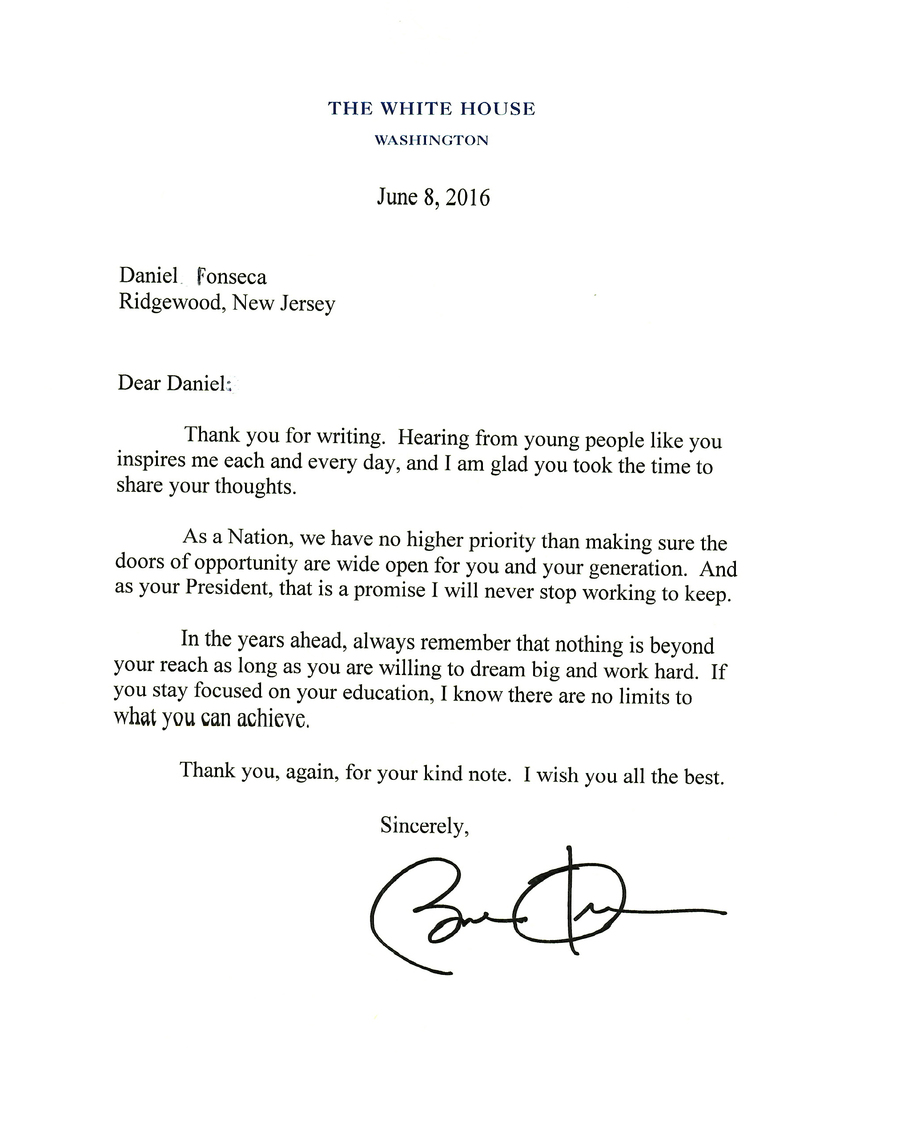 THE WHITE HOUSE
WASHINGTON
June 8, 2016
Daniel Fonseca
Ridgewood, New Jersey
Dear Daniel:
Thank you for writing. Hearing from young people like you
inspires me each and every day, and I am glad you took the time to
share your thoughts.
As a Nation, we have no higher priority than making sure the
doors of opportunity are wide open for you and your generation. And
as your President, that is a promise I will never stop working to keep.
In the years ahead, always remember that nothing is beyond
your reach as long as you are willing to dream big and work hard. If
you stay focused on your education, I know there are no limits to
what you can achieve.
Thank you, again, for your kind note. I wish you all the best.
Sincerely,